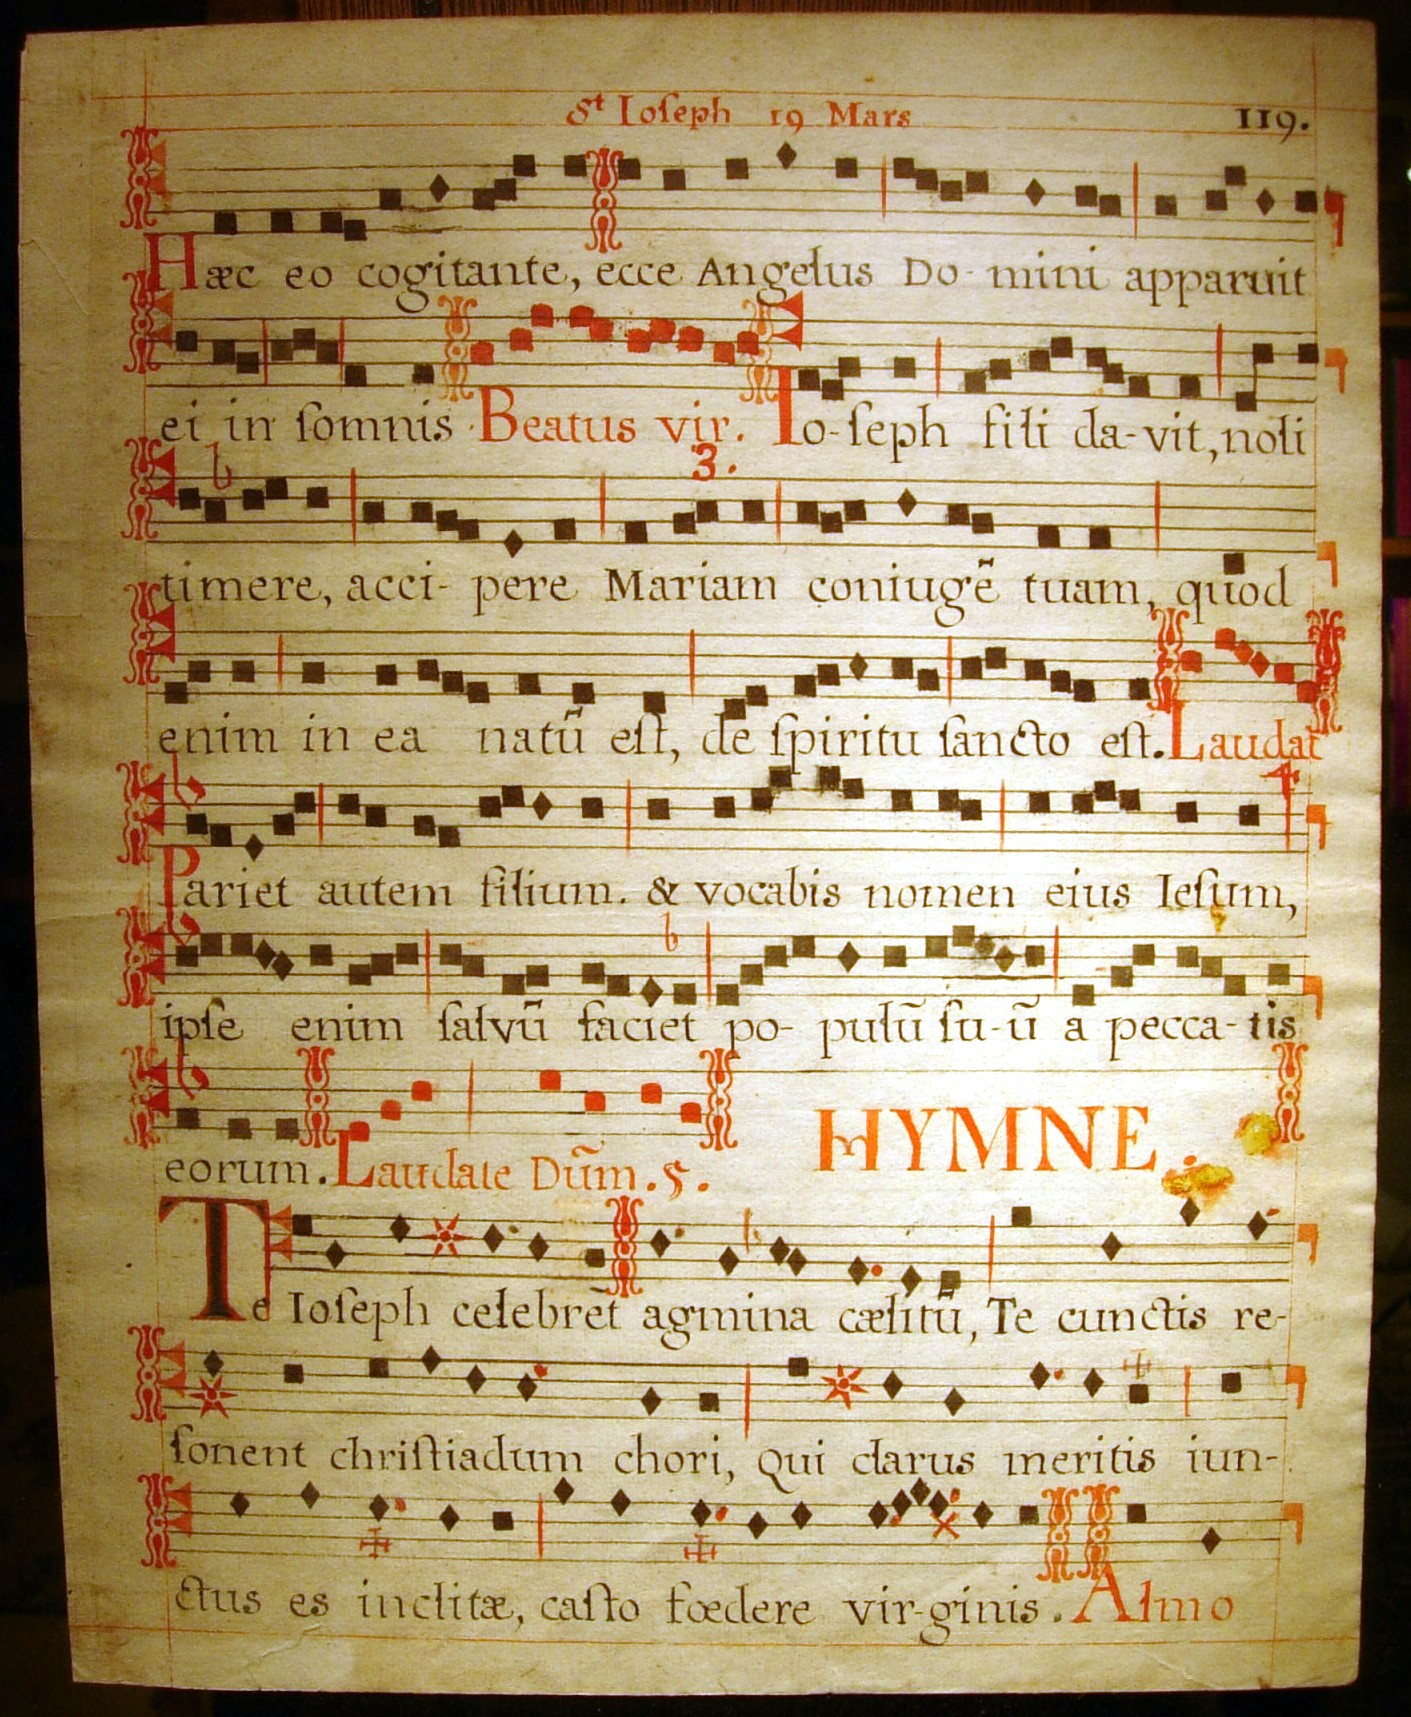 St Ioſeph 19 Mars 119.
Hæc eo cogitante, ecce Angelus Do-mini apparuit
ei in ſomnis Beatus vir. Io-ſeph fili da-vit, noli
3.
timere, acci-pere Mariam coniugẽ tuam, quod
enim in ea natũ eſt, de ſpiritu ſancto eſt. Laudat
4.
Pariet autem filium. & vocabis nomen eius Ieſum,
ipſe enim ſalvũ faciet po-pulũ ſu-ũ a pecca-tis
eorum. Laudate Dũm. 5. HYMNE.
Te Ioſeph celebret agmina cælitũ, Te cunctis re-
ſonent chriſtiadum chori, Qui clarus meritis iun-
ctus es inclitæ, caſto fœdere vir-ginis. Almo